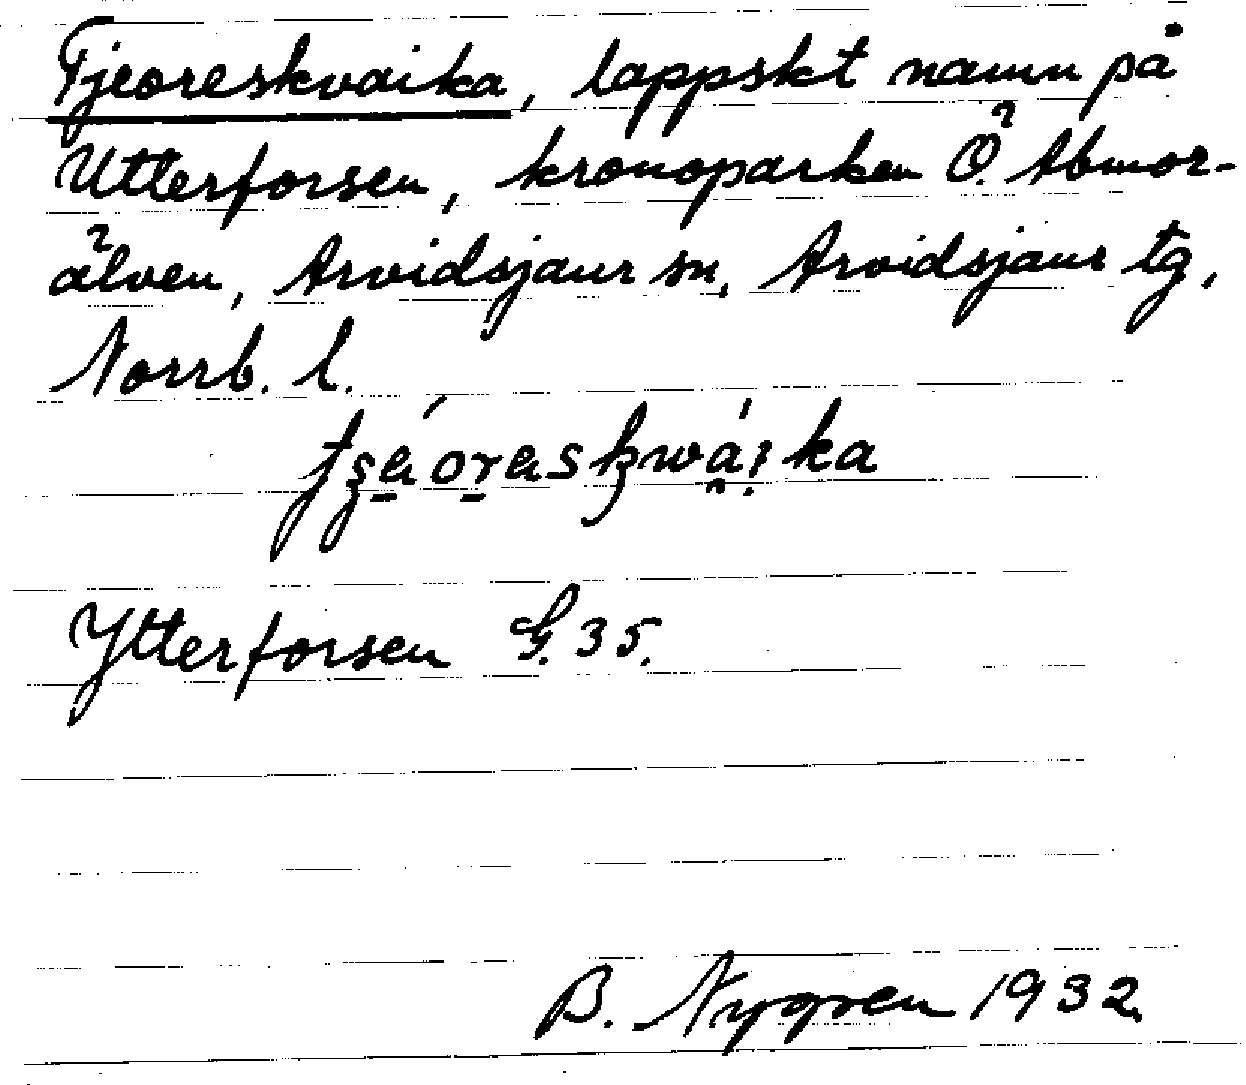 Tjeoreskvaika, lappskt namn på
Utterforsen, kronoparken Ö. Abmor-
älven, Arvidsjaur sn, Arvidsjaur tg,
Norrb. l.
Ytterforsen G. 35.
B. Nygren 1932